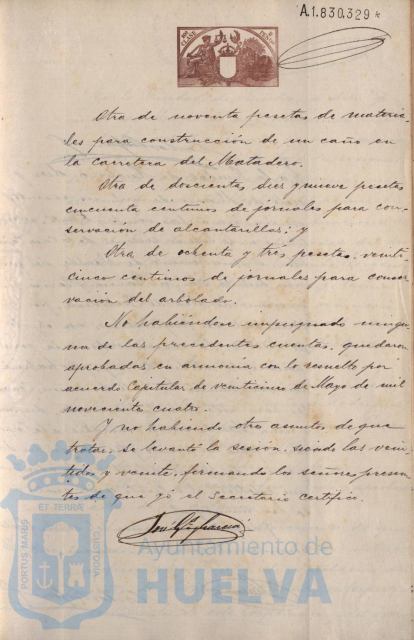 A.1.830.329
Otra de noventa pesetas de materia-
les para construcción de un caño en
la carretera del Matadero.
Otra de doscientas diez y nueve pesetas
cincuenta centimos de jornales para con-
servación de alcantarillas; y
Otra de ochenta y tres pesetas veinti-
cinco centimos de jornales para conser
vación del arbolado.
No habiéndose impugnado ningu-
na de las precedentes cuentas, quedaron
aprobadas en armonia con lo resuelto por
acuerdo Capitular de veinticinco de Mayo de mil
novecientos cuatro.
Y no habiendo otro asunto de que
tratar, se levantó la sesión, siendo las vein-
tidos y veinte, firmando los señores presen-
tes de que yo el Secretario certifico.
PORTUS MARIS
ET TERRAE
CUSTODIA
Ayuntamiento de
HUELVA